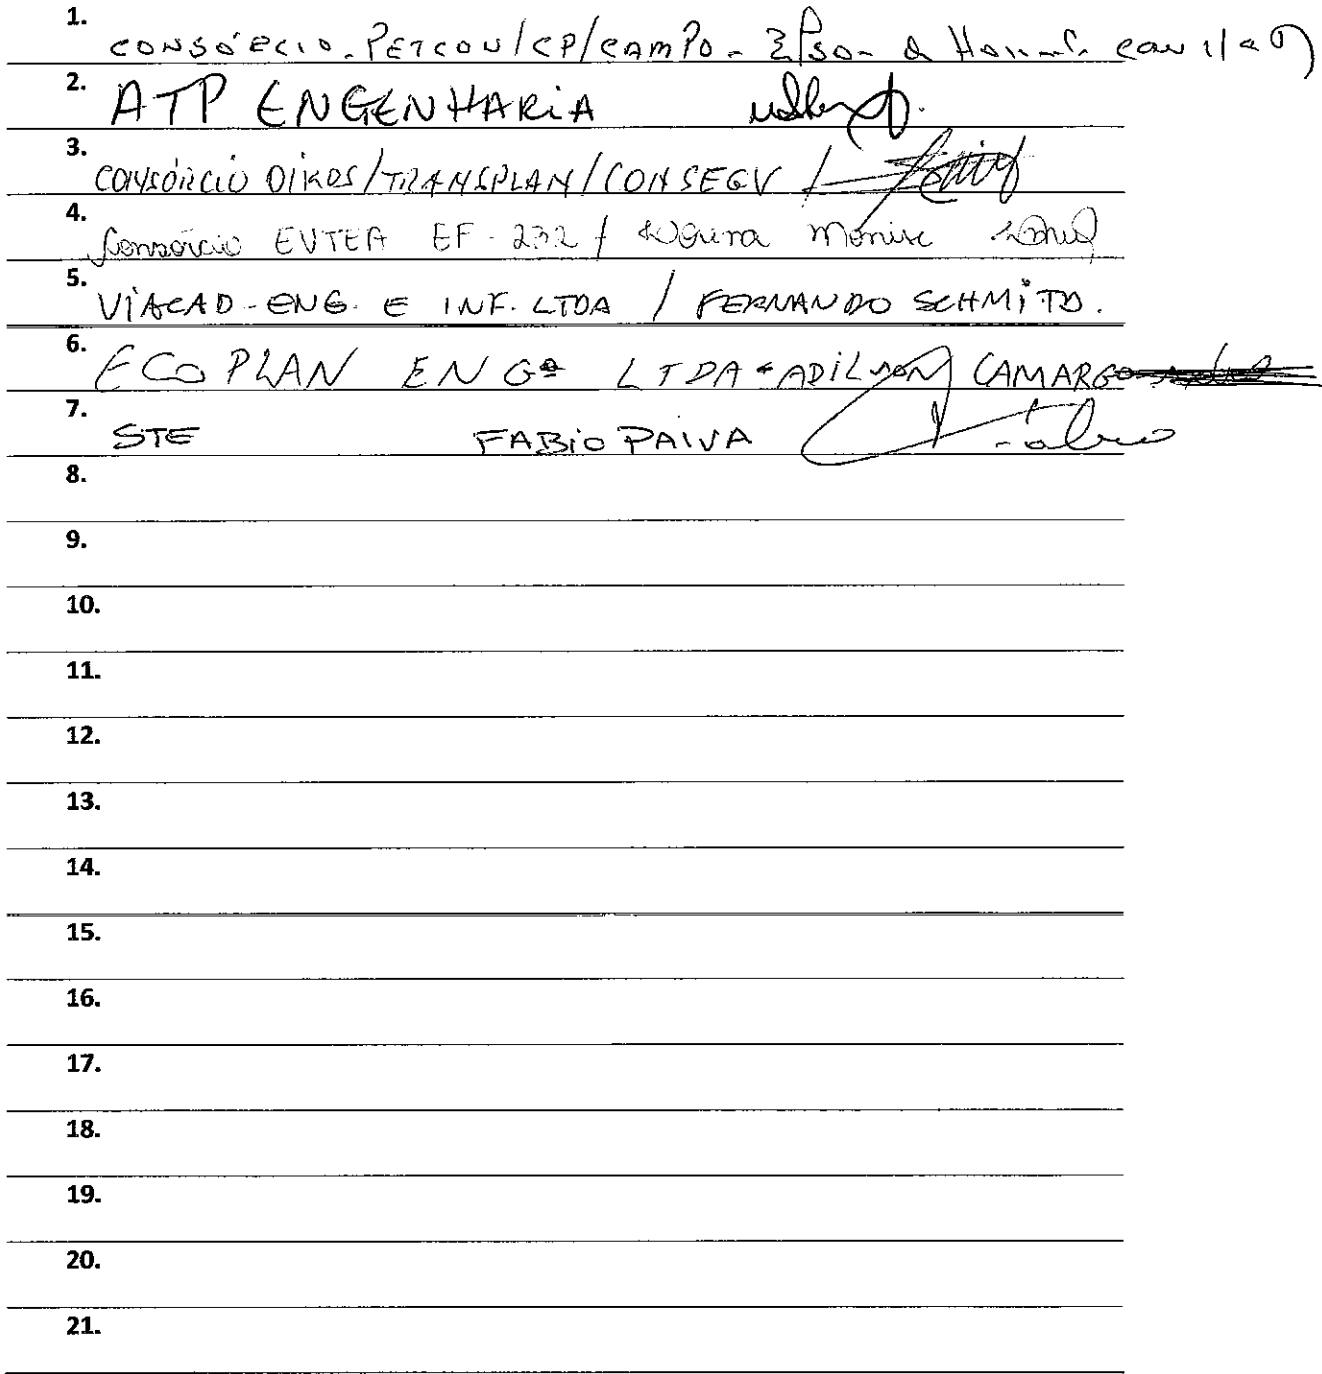 1. CONSÓRCIO - PETCON/CP/CAMPO -
2. ATP ENGENHARIA
3. CONSÓRCIO OIKOS/TRANSPLAN/CONSEGV /
4. Consórcio EVTEA EF-232 / Monise
5. VIACAD-ENG. E INF. LTDA / FERNANDO SCHMITD.
6. ECOPLAN ENGª LTDA - ADILSON CAMARGO
7. STE FABIO PAIVA
8.
9.
10.
11.
12.
13.
14.
15.
16.
17.
18.
19.
20.
21.